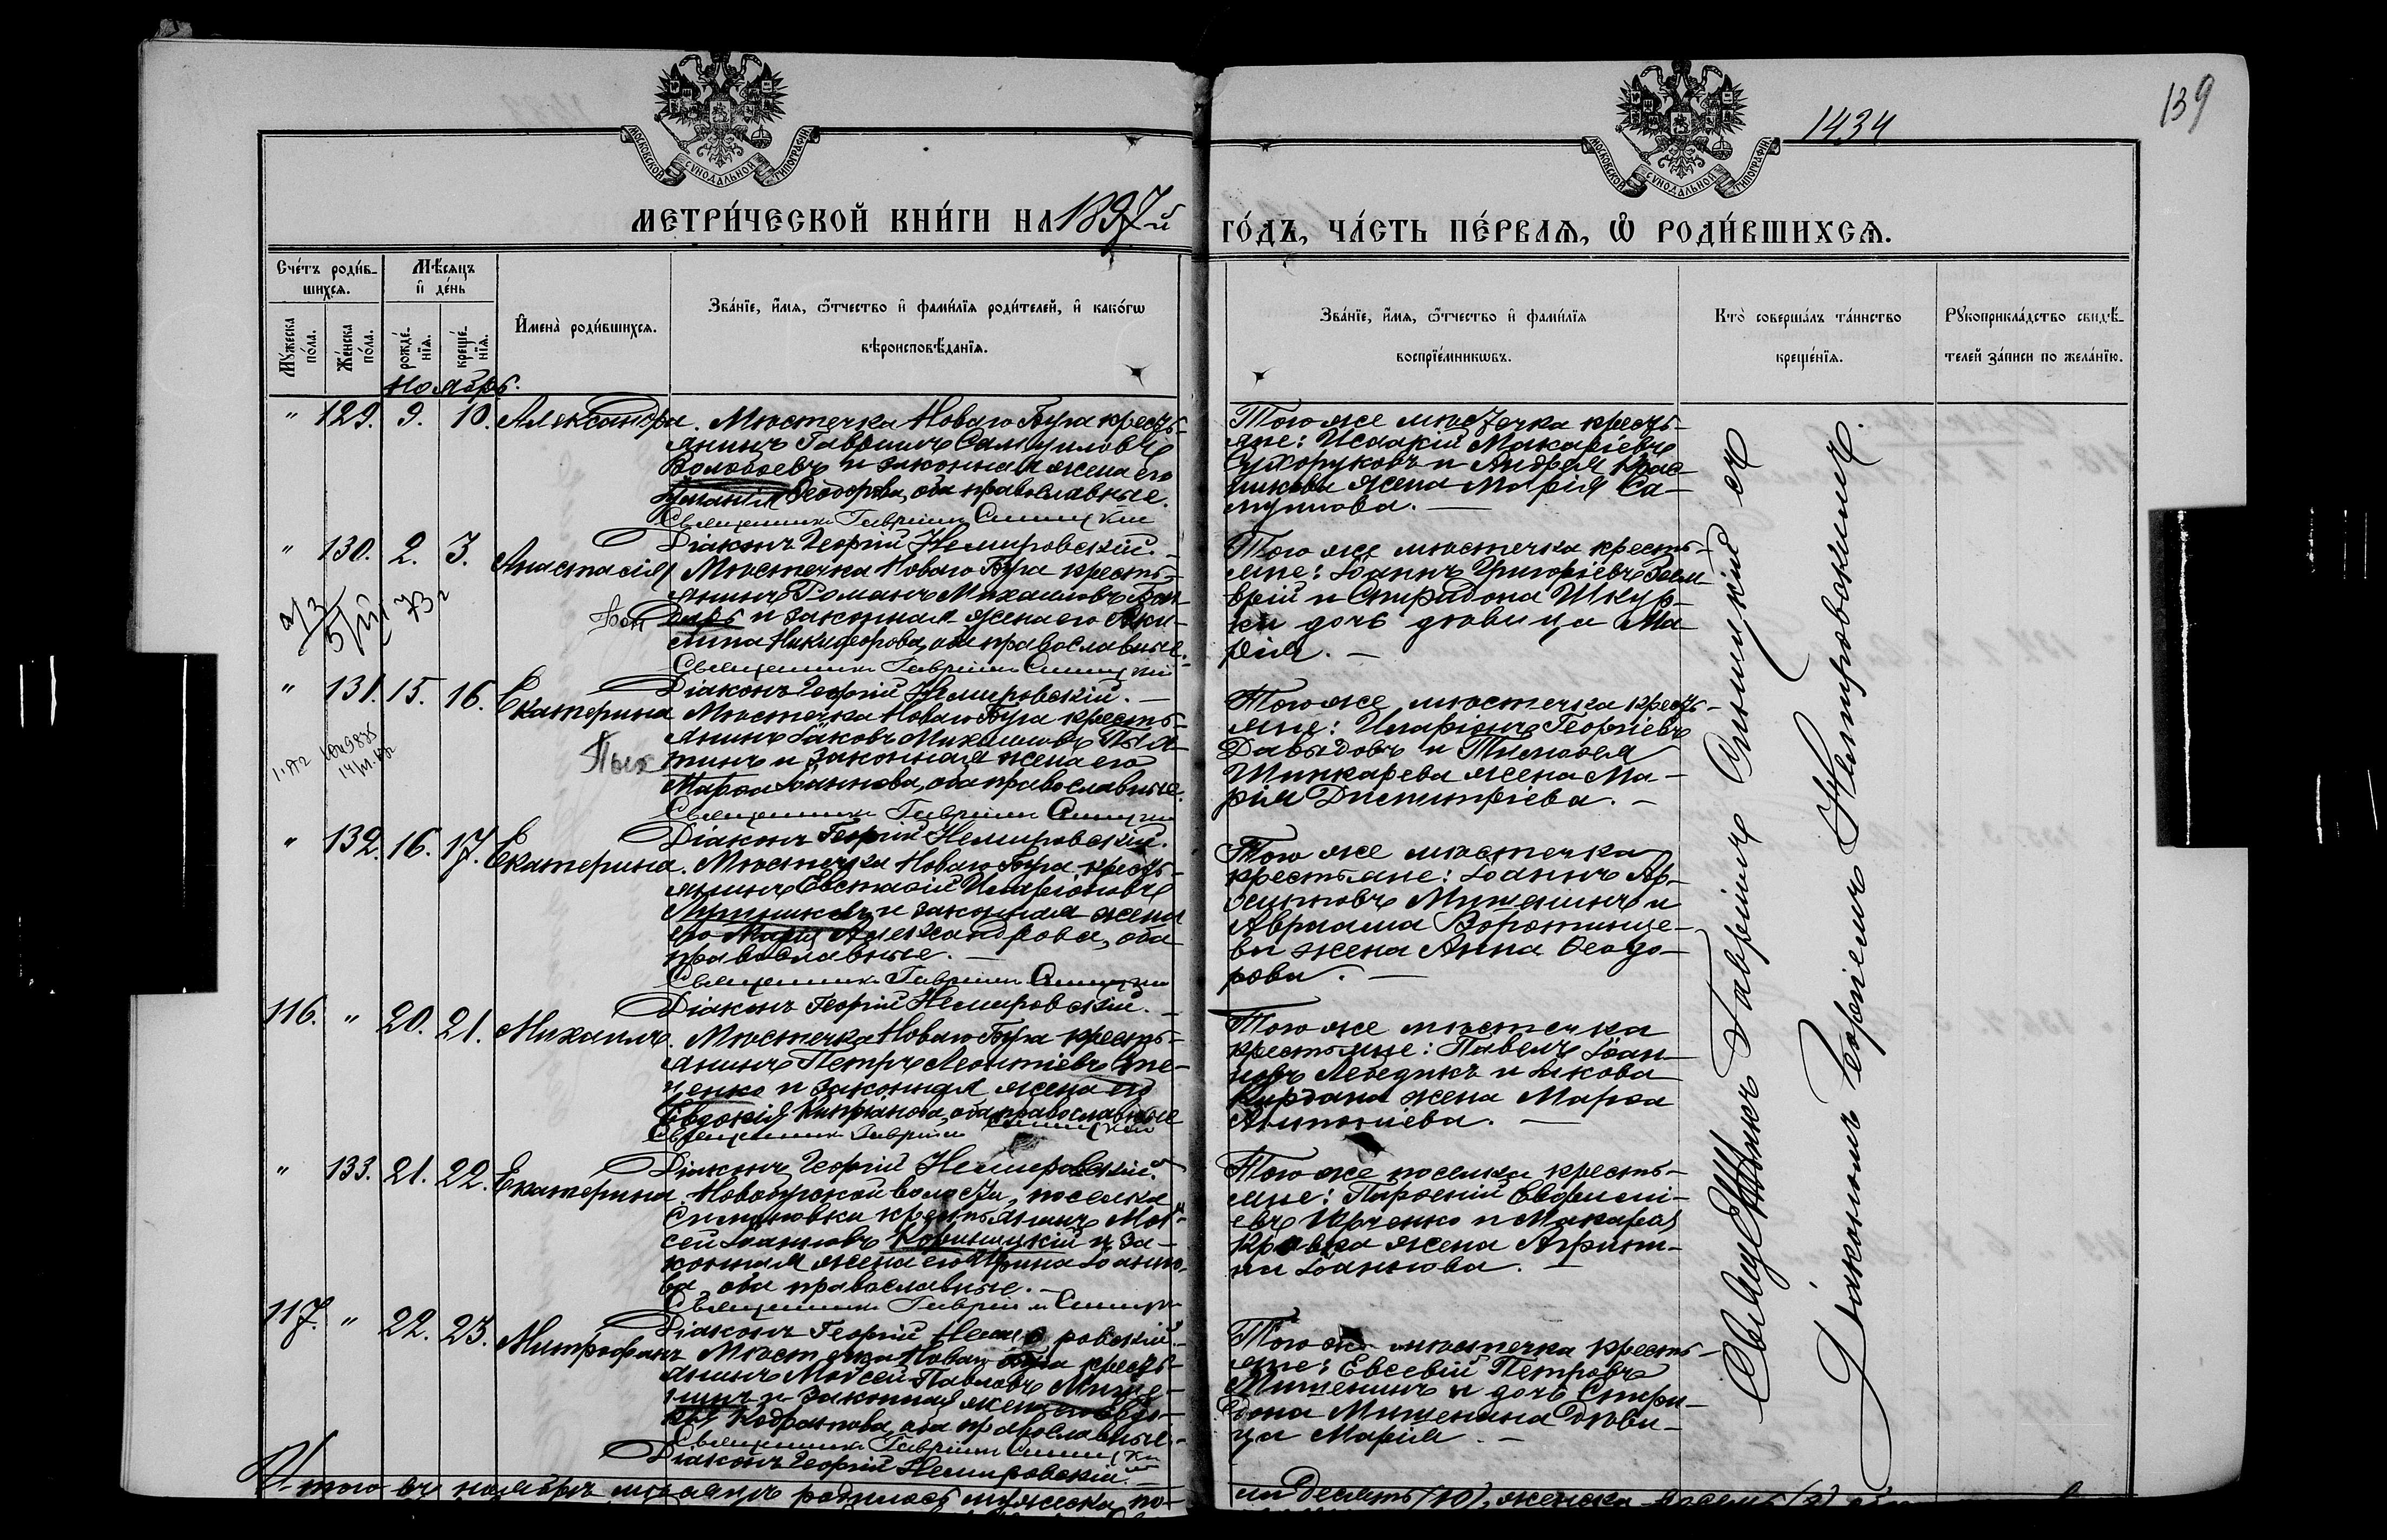 139
1434
МОСКОВСКОЙ СѴНОДАЛЬНОЙ ТИПОГРАФІИ
МОСКОВСКОЙ СѴНОДАЛЬНОЙ ТИПОГРАФІИ
МЕТРИ́ЧЕСКОЙ КНИ́ГИ НА 1897-й
ГО́ДЪ, ЧА́СТЬ ПЕ́РВАѦ, Ѡ҆ РОДИ́ВШИХСѦ.
Сче́тъ роди́в-
шихсѧ.
Мꙋ́жеска по́ла.
Же́нска по́ла.
Мѣ́сѧцъ
и҆ де́нь
рожде́-
нїѧ.
креще́-
нїѧ.
И҆мена̀ роди́вшихсѧ.
Зва́нїе, и҆́мѧ, ѻ҆́тчество и҆ фами́лїѧ роди́телей, и҆ како́гѡ
вѣроисповѣ́данїѧ.
Зва́нїе, и҆́мѧ, ѻ҆́тчество и҆ фами́лїѧ
воспрїе́мникѡвъ.
Кто̀ соверша́лъ та́инство
креще́нїѧ.
Рꙋкоприкла́дство свидѣ́-
телей за́писи по жела́нїю.
Ноябрь.
" 129. 9. 10. Александра. Мѣстечка Новаго Буга кресть-
янинъ Гавріилъ Самуиловъ
Воловоевъ и законная жена его
Ѳеодорова, оба православные.
Священникъ Гавріилъ Синицкій
Діаконъ Георгій Немировскій.
Того же мѣстечка кресть-
яне: Исаакій Макаріевъ
Сухоруковъ и Андрея
жена Марія Са-
муилова.
" 130. 2. 3. Анастасія Мѣстечка Новаго Буга кресть-
янинъ Романъ Михаиловъ Бон-
дарь и законная жена его Аки-
лина Никифорова, оба православные.
Священникъ Гавріилъ Синицкій
Діаконъ Георгій Немировскій.
Бон
Того же мѣстечка кресть-
яне: Іоаннъ Григоріевъ
и Спиридона Шкур-
ки дочь дѣвица Ма-
рія.
" 131. 15. 16. Екатерина Мѣстечка Новаго Буга кресть-
янинъ Іаковъ Михаиловъ Пых-
тинъ и законная жена его
Марѳа Іоаннова, оба православные.
Священникъ Гавріилъ Синицкій
Діаконъ Георгій Немировскій.
Пых
Того же мѣстечка кресть-
яне: Иларіонъ Георгіевъ
Давыдовъ и Тимоѳея
Шинкарева жена Ма-
рія Димитріева.
" 132. 16. 17. Екатерина. Мѣстечка Новаго Буга кресть-
янинъ Евстаѳій Иларіоновъ
и законная жена
его Марія Александрова, оба
православные.
Священникъ Гавріилъ Синицкій
Діаконъ Георгій Немировскій.
Того же мѣстечка
крестьяне: Іоаннъ Ар-
Мишенинъ и
Авраама Воротынце-
ва жена Анна Ѳеодо-
рова.
116. " 20. 21. Михаилъ. Мѣстечка Новаго Буга кресть-
янинъ Петръ Леонтіевъ
и законная жена его
Евдокія Кипріанова, оба православные
Священникъ Гавріилъ Синицкій
Діаконъ Георгій Немировскій.
Того же мѣстечка
крестьяне: Павелъ Іоан-
новъ Лебедикъ и Іакова
Курдана жена Марѳа
Антоніева.
" 133. 21. 22. Екатерина. Новобугской волости, поселка
крестьянинъ Мои-
сей Іоанновъ и за-
конная жена его Ирина Іоанно-
ва, оба православные.
Священникъ Гавріилъ Синицкій
Діаконъ Георгій Немировскій.
Того же поселка кресть-
яне: Парѳеній Евфимі-
евъ и Макарія
Кравца жена Агрипи-
на Іоаннова.
117. " 22. 23. Митрофанъ Мѣстечка Новаго Буга кресть-
янинъ Моисей Павловъ Мише-
нинъ и законная жена его Евдо-
кія Кодратова, оба православные.
Священникъ Гавріилъ Синицкій
Діаконъ Георгій Немировскій.
Того же мѣстечка кресть-
яне: Евсевій Петровъ
Мишенинъ и дочь Спири-
дона Мишенина дѣви-
ца Марія.
Священникъ Гавріилъ Синицкій съ
Діакономъ Георгіемъ Немировскимъ.
Итого въ ноябрѣ мѣсяцѣ родилось мужеска по-
ла десять (10), женска